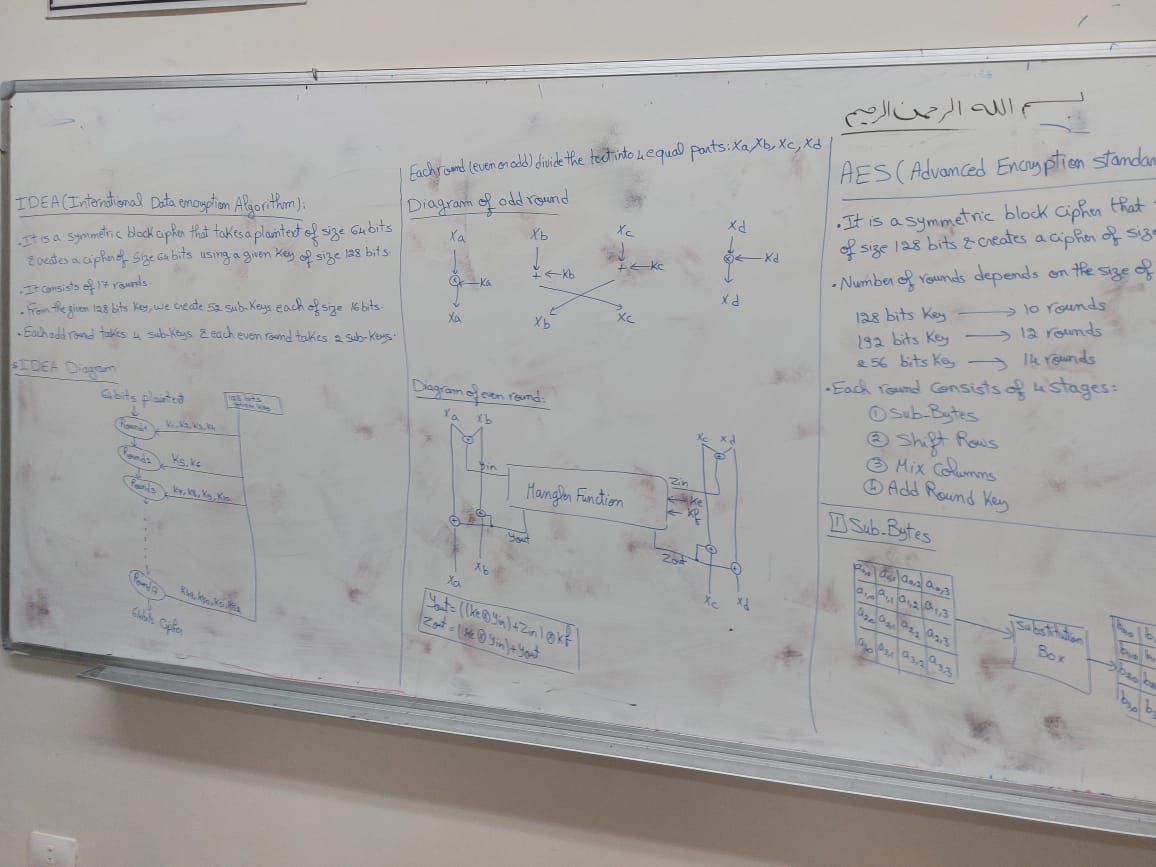 IDEA (International Data encryption Algorithm):
. It is a symmetric block cipher that takes a plaintext of size 64 bits
& creates a cipher of size 64 bits using a given Key of size 128 bits.
. It consists of 17 rounds.
. From the given 128 bits Key, we create 52 sub-Keys each of size 16 bits.
. Each odd round takes 4 sub-Keys & each even round takes 2 sub-Keys.
IDEA Diagram
64 bits
128 bits
given key
Round1
K1, K2, K3, K4
Round2
K5, K6
Round3
K7, K8, K9, K10
Round17
K49, K50, K51, K52
64 bits Cipher
Each round (even or odd) divide the text into 4 equal parts: Xa, Xb, Xc, Xd
Diagram of odd round
Xa Xb Xc Xd
Ka Kb Kc Kd
Xa Xb Xc Xd
Diagram of even round:
Xa Xb Xc Xd
Yin Mangler Function Zin
Ke
Kf
Yout Zout
Xa Xb Xc Xd
Yout = ((Ke ⊗ Yin) + Zin) ⊗ Kf
Zout = (Ke ⊗ Yin) + Yout
بسم الله الرحمن الرحيم
AES (Advanced Encryption Standar
. It is a symmetric block cipher that
of size 128 bits & creates a cipher of size
. Number of rounds depends on the size of
128 bits Key → 10 rounds
192 bits Key → 12 rounds
256 bits Key → 14 rounds
. Each round consists of 4 stages:
① Sub-Bytes
② Shift Rows
③ Mix Columns
④ Add Round Key
1 Sub-Bytes
a0,0 a0,1 a0,2 a0,3
a1,0 a1,1 a1,2 a1,3
a2,0 a2,1 a2,2 a2,3
a3,0 a3,1 a3,2 a3,3
Substitution
Box
b0,0 b
b1,0 b
b2,0 b
b3,0 b